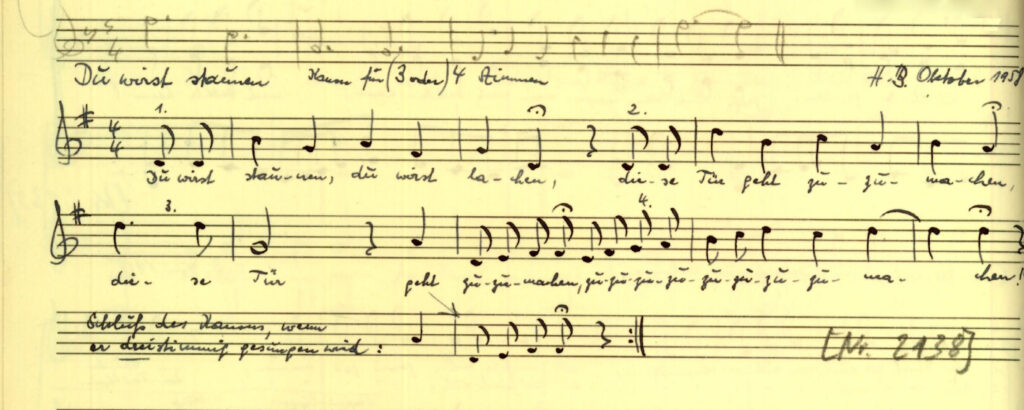 Du wirst staunen Kanon für (3 oder) 4 Stimmen H. B. Oktober 1958
1. 2.
Du wirst stau-nen, du wirst la-chen, die-se Tür geht zu-zu-ma-chen,
3. 4.
die-se Tür geht zu-zu-machen, zu-zu-zu-zu-zu-zu-zu-zu-ma-chen!
Schluß des Kanons, wenn
er dreistimmig gesungen wird:
[Nr. 2138]